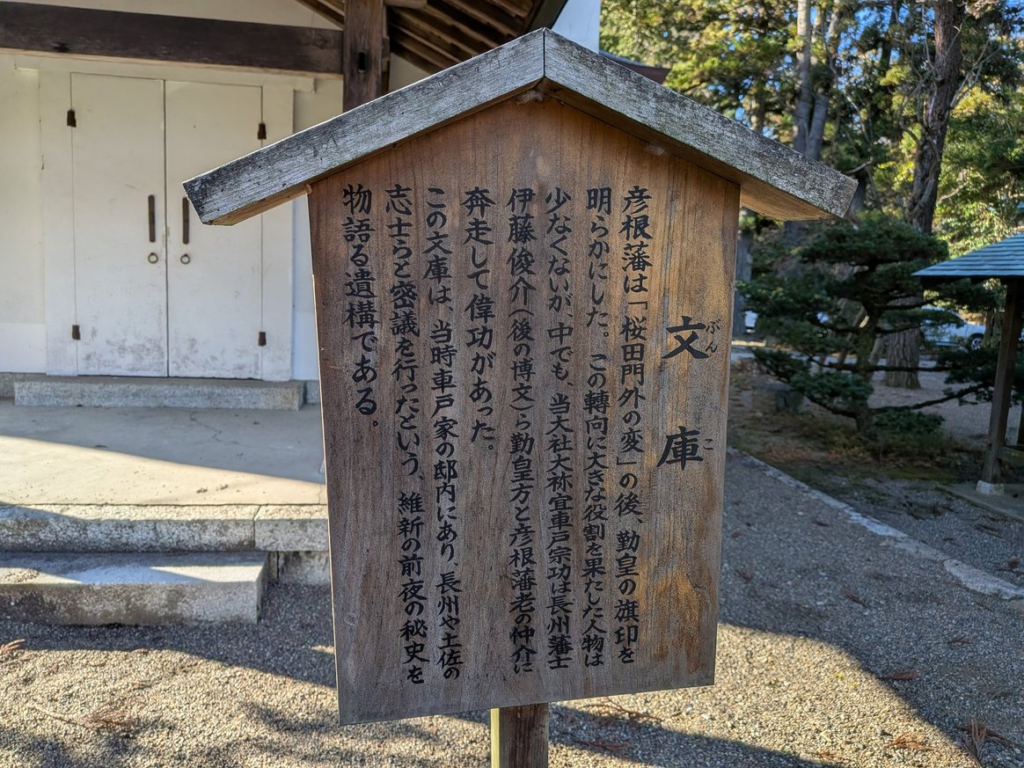 文庫
ぶんこ
彦根藩は「桜田門外の変」の後、勤皇の旗印を
明らかにした。この轉向に大きな役割を果たした人物は
少なくないが、中でも、当大社大祢宜車戸宗功は長州藩士
伊藤俊介（後の博文）ら勤皇方と彦根藩老の仲介に
奔走して偉功があった。
この文庫は、当時車戸家の邸内にあり、長州や土佐の
志士らと密議を行ったという、維新の前夜の秘史を
物語る遺構である。